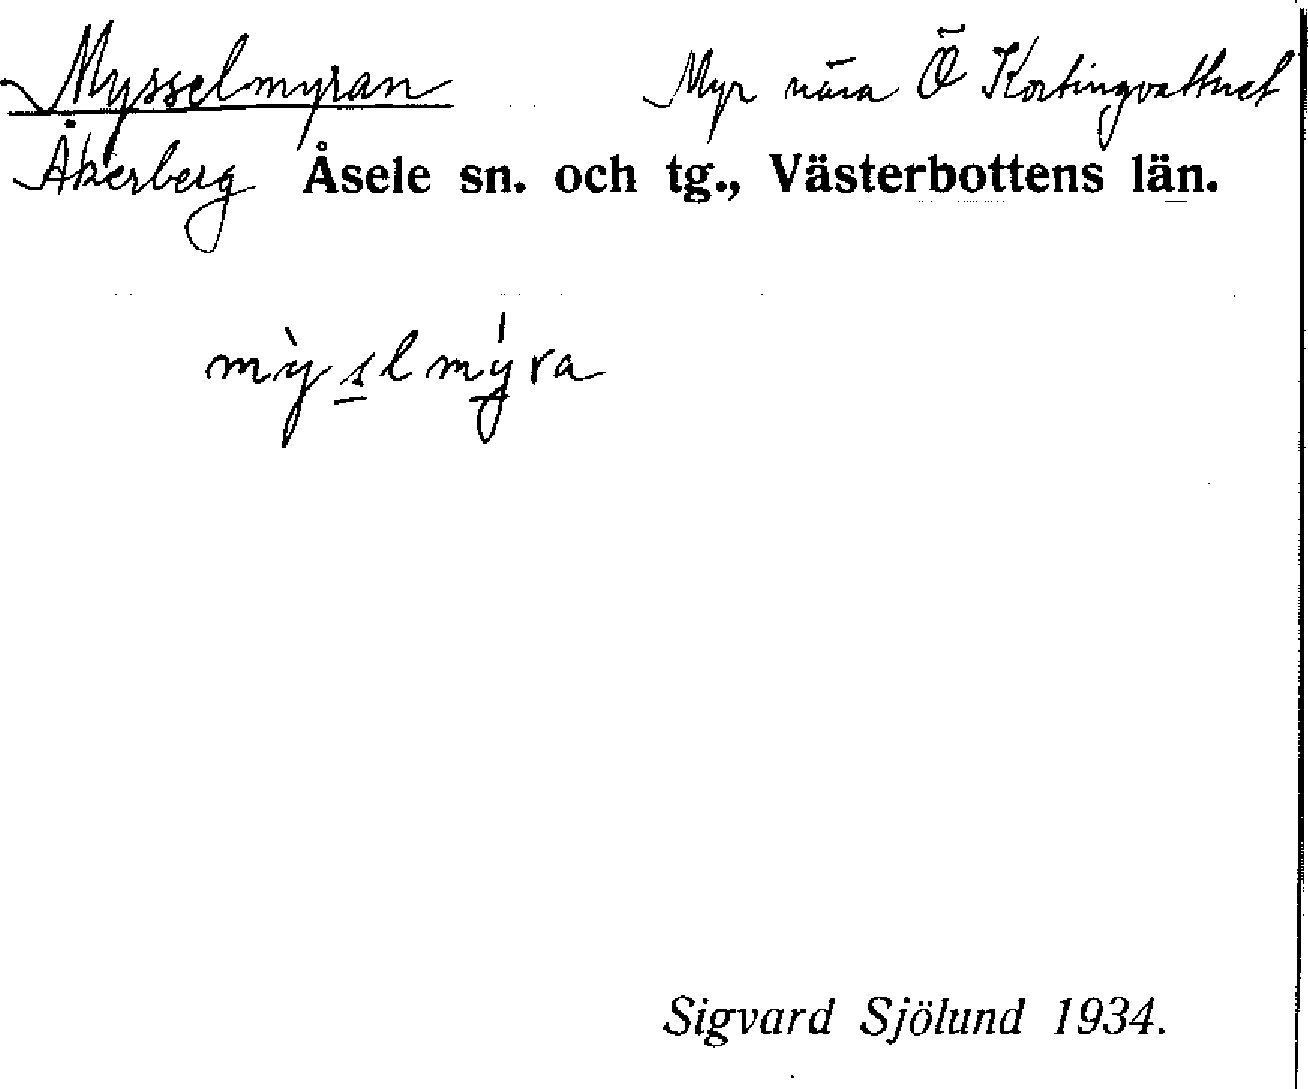 Mysselmyran Myr nära Ö Kortingvattnet
Åkerberg Åsele sn. och tg., Västerbottens län.
mỳs̲lmýra
Sigvard Sjölund 1934.